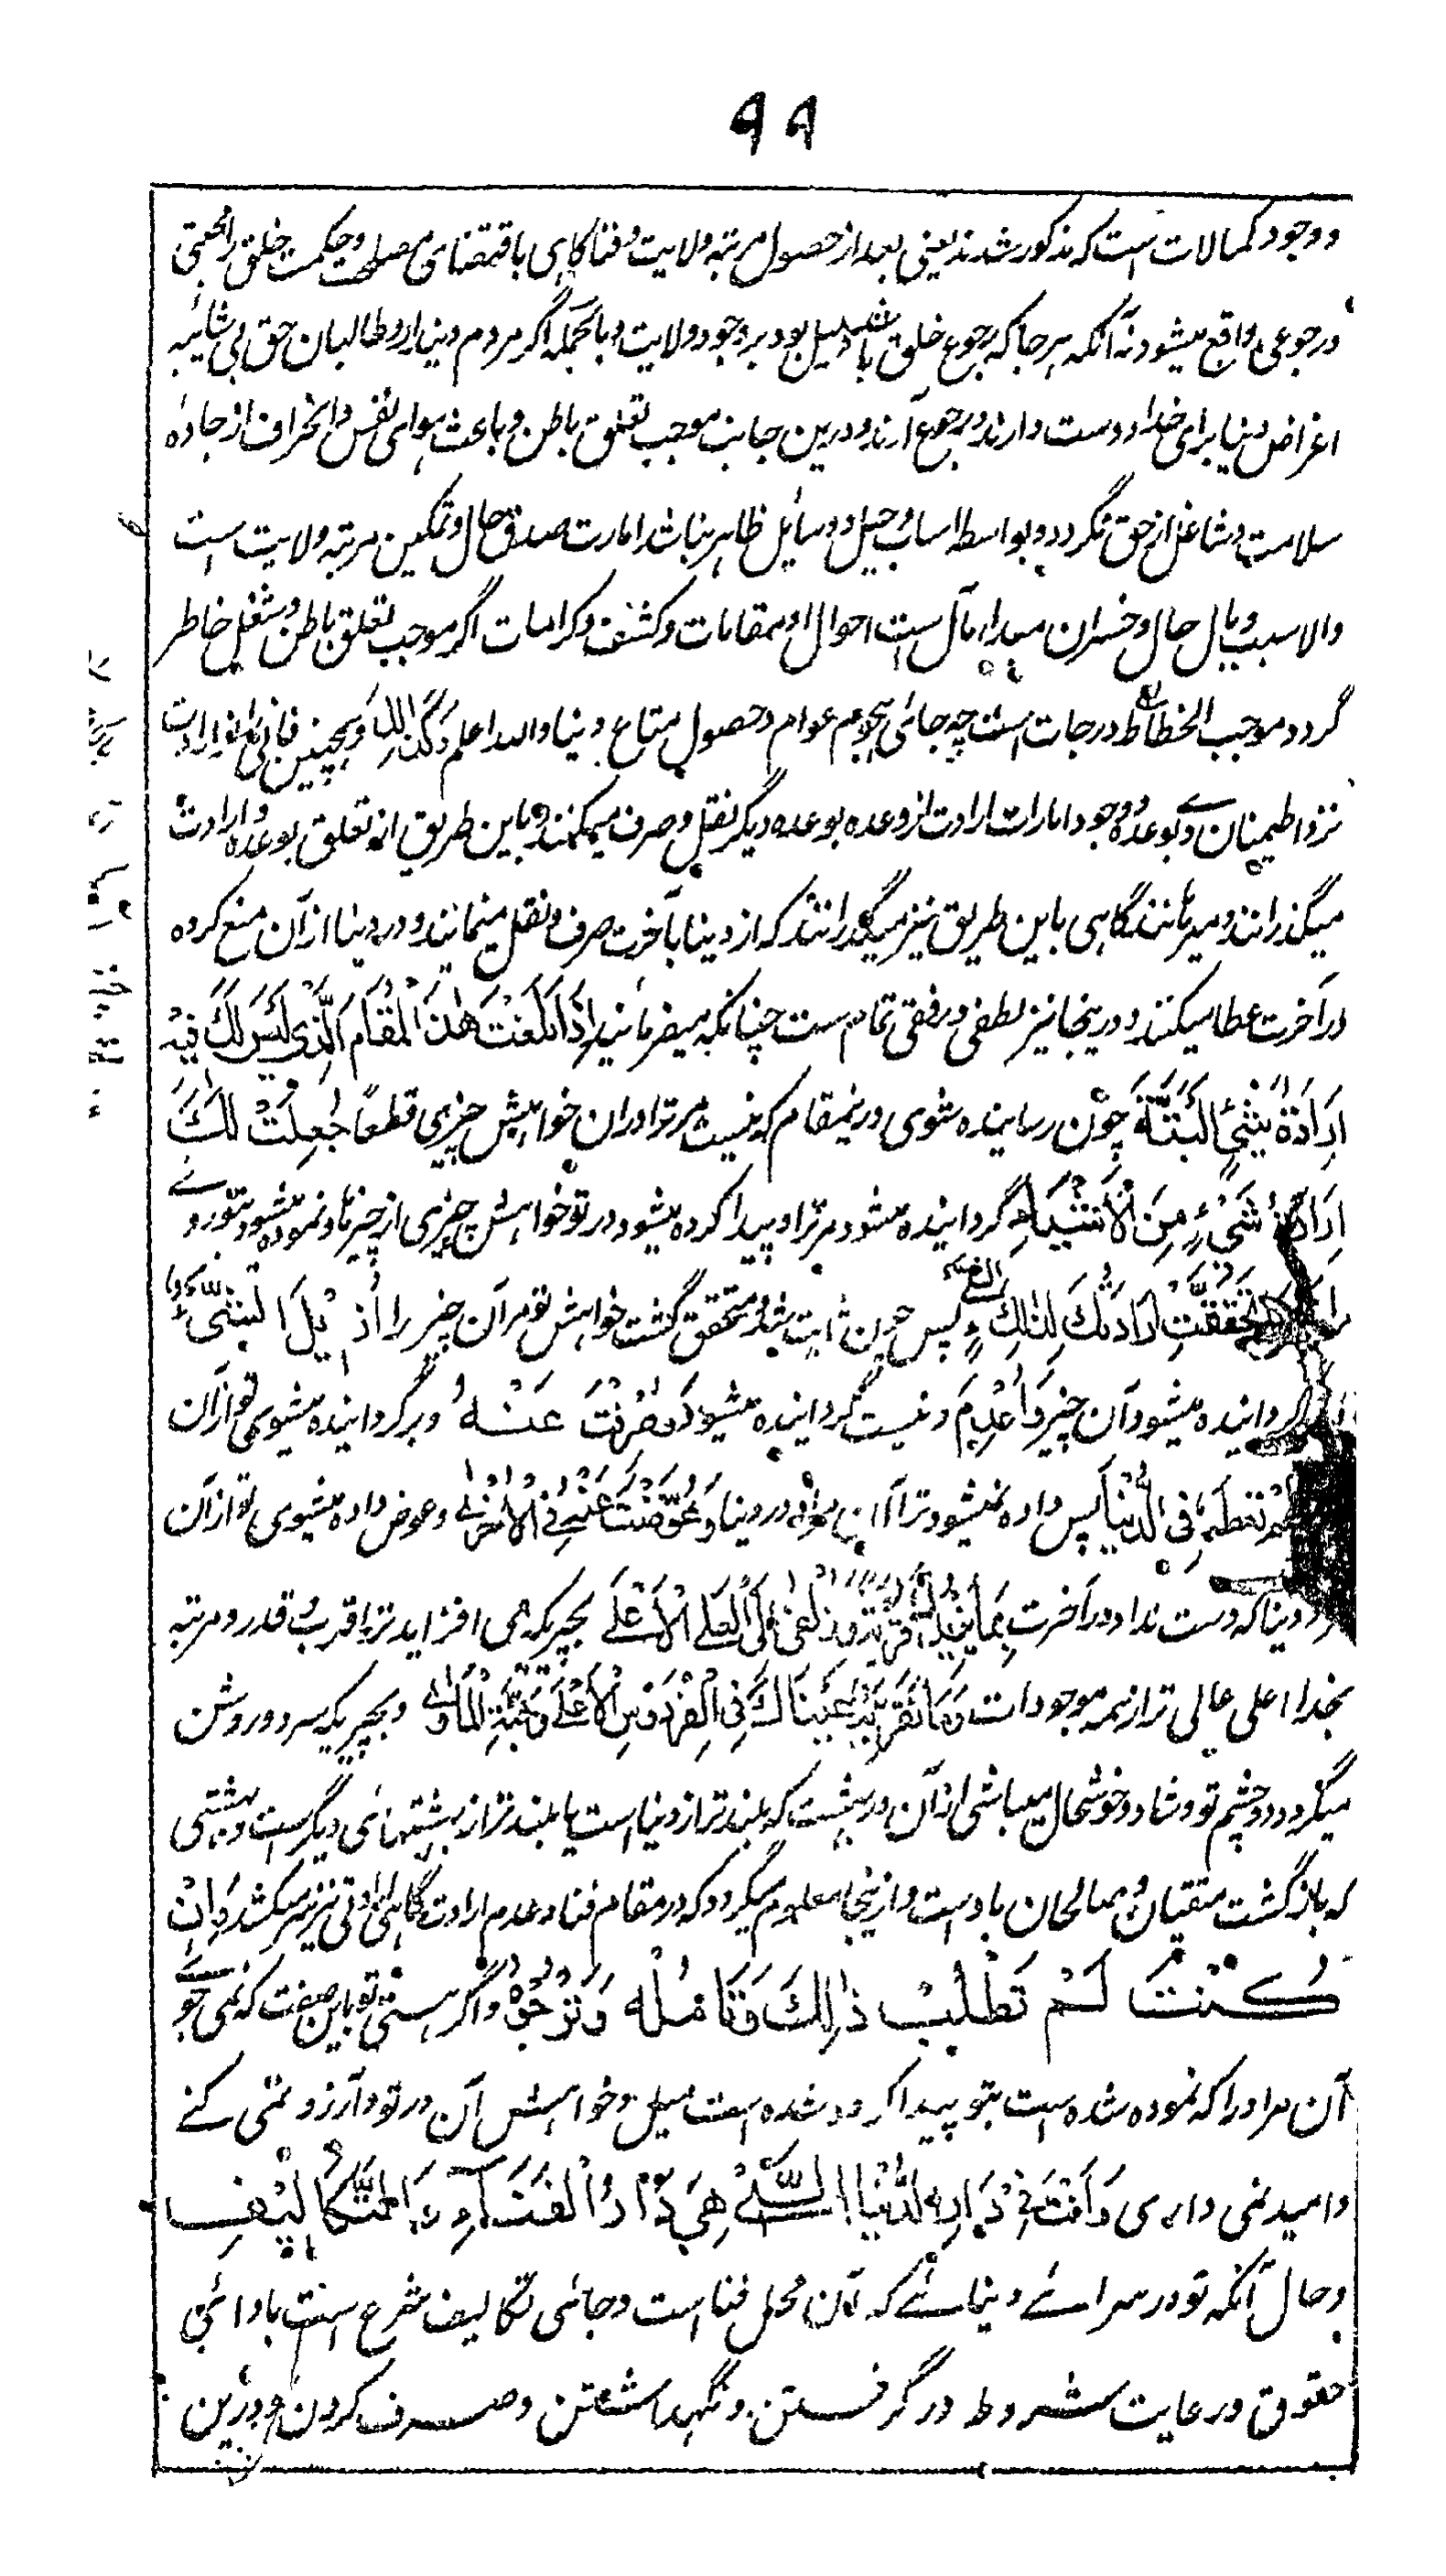 ۹۹
و وجود کمالات است که مذکور شدند یعنی بعد از حصول مرتبه ولایت و فنا گاهی باقتضای مصلحت و حکمت خلق را محبتی
و رجوعی واقع میشود نه آنکه هر جا که رجوع خلق باشد دلیل بود بر وجود ولایت و بالجمله اگر مردم دنیادار و طالبان حق بی شائبه
اغراض دنیا برای خدا دوست دارند و رجوع آرند و درین جانب موجب تعلق باطن و باعث هوای نفس و انحراف از جاده
سلامت و شاغل از حق نگردد و بواسطه اسباب و حیل و وسایل ظاهر نباشد امارت صدق حال و تمکین مرتبه ولایت است
والا سبب وبال حال و خسران مبدا و مآل ست احوال و مقامات و کشف و کرامات اگر موجب تعلق باطن و شغل خاطر
گردد موجب انحطاط درجات است چه جائی هجوم عوام و حصول متاع دنیا والله اعلم وکذلک و همچنین فانی از ارادت
نزد اطمینان وی بوعده و وجود امارات ارادت از وعده بوعده دیگر نقل و صرف میکنند و باین طریق از تعلق بوعده و ارادت
میگذرانند و میرهانند گاهی باین طریق نیز میگذرانند که از دنیا بآخرت صرف و نقل مینمایند و در دنیا از آن منع کرده
در آخرت عطا میکنند و درینجا نیز لطفی و رفقی تمام ست چنانکه میفرمایند إِذَا بَلَغْتَ هٰذَا الْمَقَامَ الَّذِي لَيْسَ لَكَ فِيْهِ
إِرَادَةُ شَيْءٍ الْبَتَّةَ چون رسانیده شوی درینمقام که نیست مر ترا در آن خواهش چیزی قطعاً جُعِلَتْ لَكَ
إِرَادَةُ شَيْءٍ مِنَ الْأَشْيَاءِ گردانیده میشود مر ترا و پیدا کرده میشود در تو خواهش چیزی از چیزها و نموده میشود بتو روے
تَحَقَّقَتْ إِرَادَتُكَ لِذٰلِكَ الشئ پس چون ثابت شد و متحقق گشت خواهش تو مر آن چیز را أُزِيْلَ الشَّيْءُ
گردانیده میشود آن چیز وَأُعْدِمَ و نیست گردانیده میشود وَصُرِفْتَ عَنْهُ و برگردانیده میشوی تو از آن
تُعْطَهُ فِي الدُّنْيَا پس داده نمیشود ترا آن مراد در دنیا وَعُوِّضْتَ عَنْهُ فِي الْأُخْرٰى و عوض داده میشوی تو از آن
دنیا که دست نداد در آخرت بِمَا يَزِيْدُكَ قُرْبَةً وَزُلْفٰى إِلَى الْعَلِيِّ الْأَعْلٰى بچیزیکه می افزاید ترا قرب و قدر و مرتبه
بخدا اعلی عالی تر از همه موجودات وَمَا تَقَرُّ بِهِ عَيْنَاكَ فِي الْفِرْدَوْسِ الْأَعْلٰى وَجَنَّةِ الْمَأْوٰى و بچیزیکه سرد و روشن
میگردد دو چشم تو و شاد و خوشحال میباشی از آن در بهشت که بلند تر از دنیا است یا بلند تر از بهشتهائی دیگر ست و بهشتی
که بازگشت متقیان و صالحان باوست و ازینجا معلوم میگردد که در مقام فنا و عدم ارادت گاهی ارادتی نیز سر میکشد وَإِنْ
كُنْتَ لَمْ تَطْلُبْ ذٰلِكَ وَتَأْمُلْهُ وَتَرْجُوْهُ و اگر هستی تو باین صفت که نمی جوے
آن مراد را که نموده شده است بتو پیدا کرده شده است میل و خواهش آن در تو و آرزو نمی کنے
و امید نمی داری وَأَنْتَ فِيْ دَارِ الدُّنْيَا الَّتِيْ هِيَ دَارُ الْفَنَاءِ وَالتَّكَالِيْفِ
و حال آنکه تو در سرائے دنیائے که آن محل فنا است و جائی تکالیف شرع است با دائی
حقوق و رعایت شروط در گرفتن و نگهداشتن و صرف کردن و درین